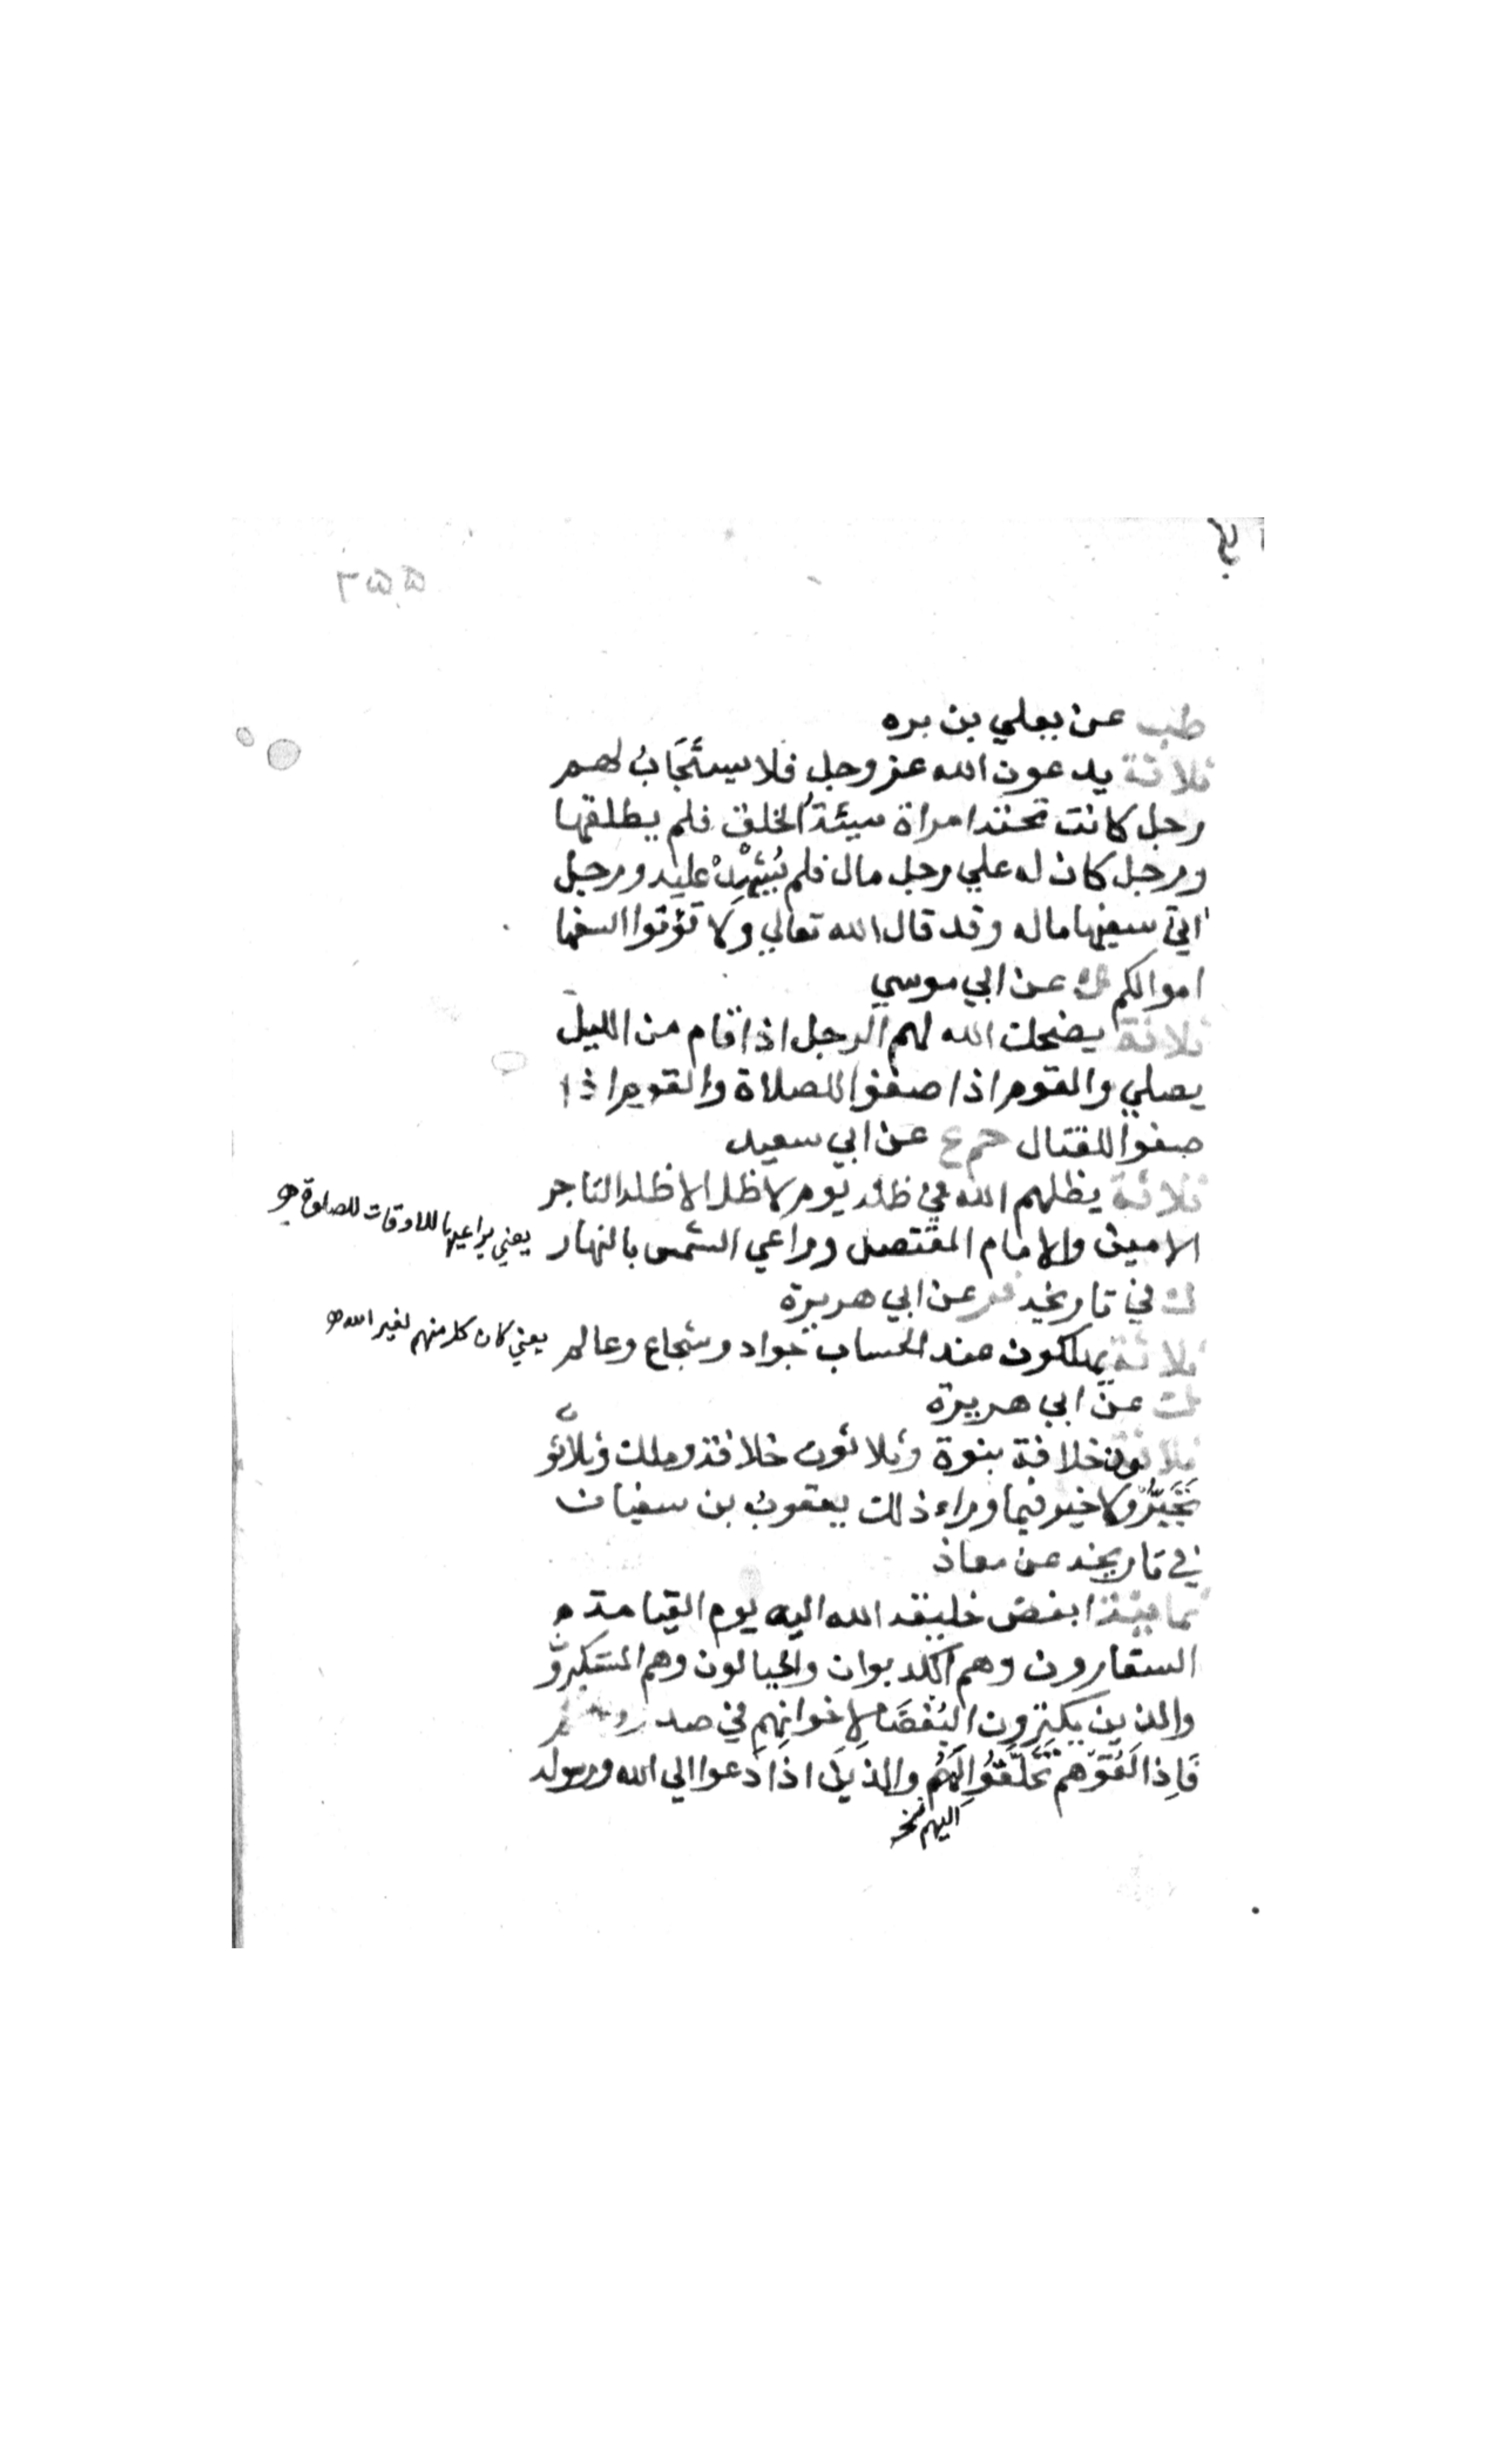 ٢٥٥
طب عن يعلي بن مره
ثلاثة يدعون الله عز وجل فلا يستَجَابُ لهم
رجل كانت تحته امراة سيئةُ الخلق فلم يطلقها
ورجل كان له علي رجل مال فلم يُشْهِدْ عليه ورجل
اتي سفيها ماله وقد قال الله تعالي ولا تؤتوا السفها
اموالكم ك عن ابي موسي
ثلاثة يضحك الله لهم الرجل اذا قام من الليل
يصلي والقوم اذا صفوا للصلاة والقوم اذا
صفوا للقتال حم ع عن ابي سعيد
ثلاثة يظلهم الله في ظله يوم لا ظل الا ظله التاجر
الامين والامام المقتصد وراعي الشمس بالنهار
يعني يراعيها للاوقات للصلوة
ك في تاريخه فر عن ابي هريرة
ثلاثة يهلكون عند الحساب جواد وشجاع وعالم
يعني كان كل منهم لغير الله
ك عن ابي هريرة
ثلاثون خلافة نبوة وثلاثون خلافة وملك وثلاثون
تَجَبُّرٌ ولا خير فيما وراء ذلك يعقوب بن سفيان
في تاريخه عن معاذ
ثمانية ابغض خليقة الله اليه يوم القيامة
السقارون وهم الكذابون والخيالون وهم المستكبرون
والذين يكنزون البُغْضَا لإخوانِهِم في صدورهم
فَإِذا لَقُوهُم تَخَلَّقُوا لَهُم والذين اذا دُعوا الي الله ورسوله
اليهم نخ